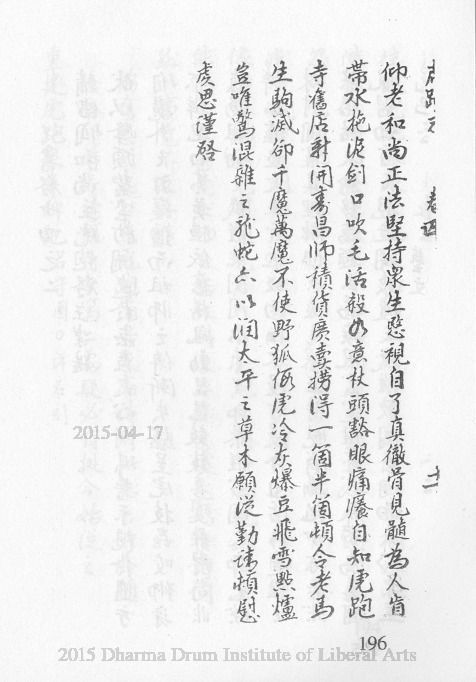 卷四
十一
仰老和尚正法堅持眾生愍視自了真徹骨見髓為人肯
帶水拖泥劍口吹毛活殺如意杖頭豁眼痛癢自知虎跑
寺舊店新開壽昌師積貨廣賣撈得一箇半箇頓令老馬
生駒滅卻千魔萬魔不使野狐假虎冷灰爆豆飛雪點爐
豈唯驚混雜之龍蛇亦以潤太平之草木願從勤請頓慰
虔思謹啓
2015-04-17
196
2015 Dharma Drum Institute of Liberal Arts